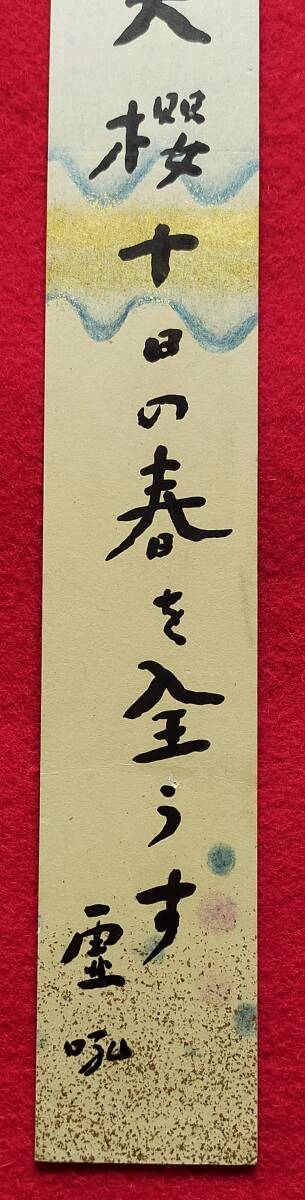 櫻十日の春を全うす
霊吼